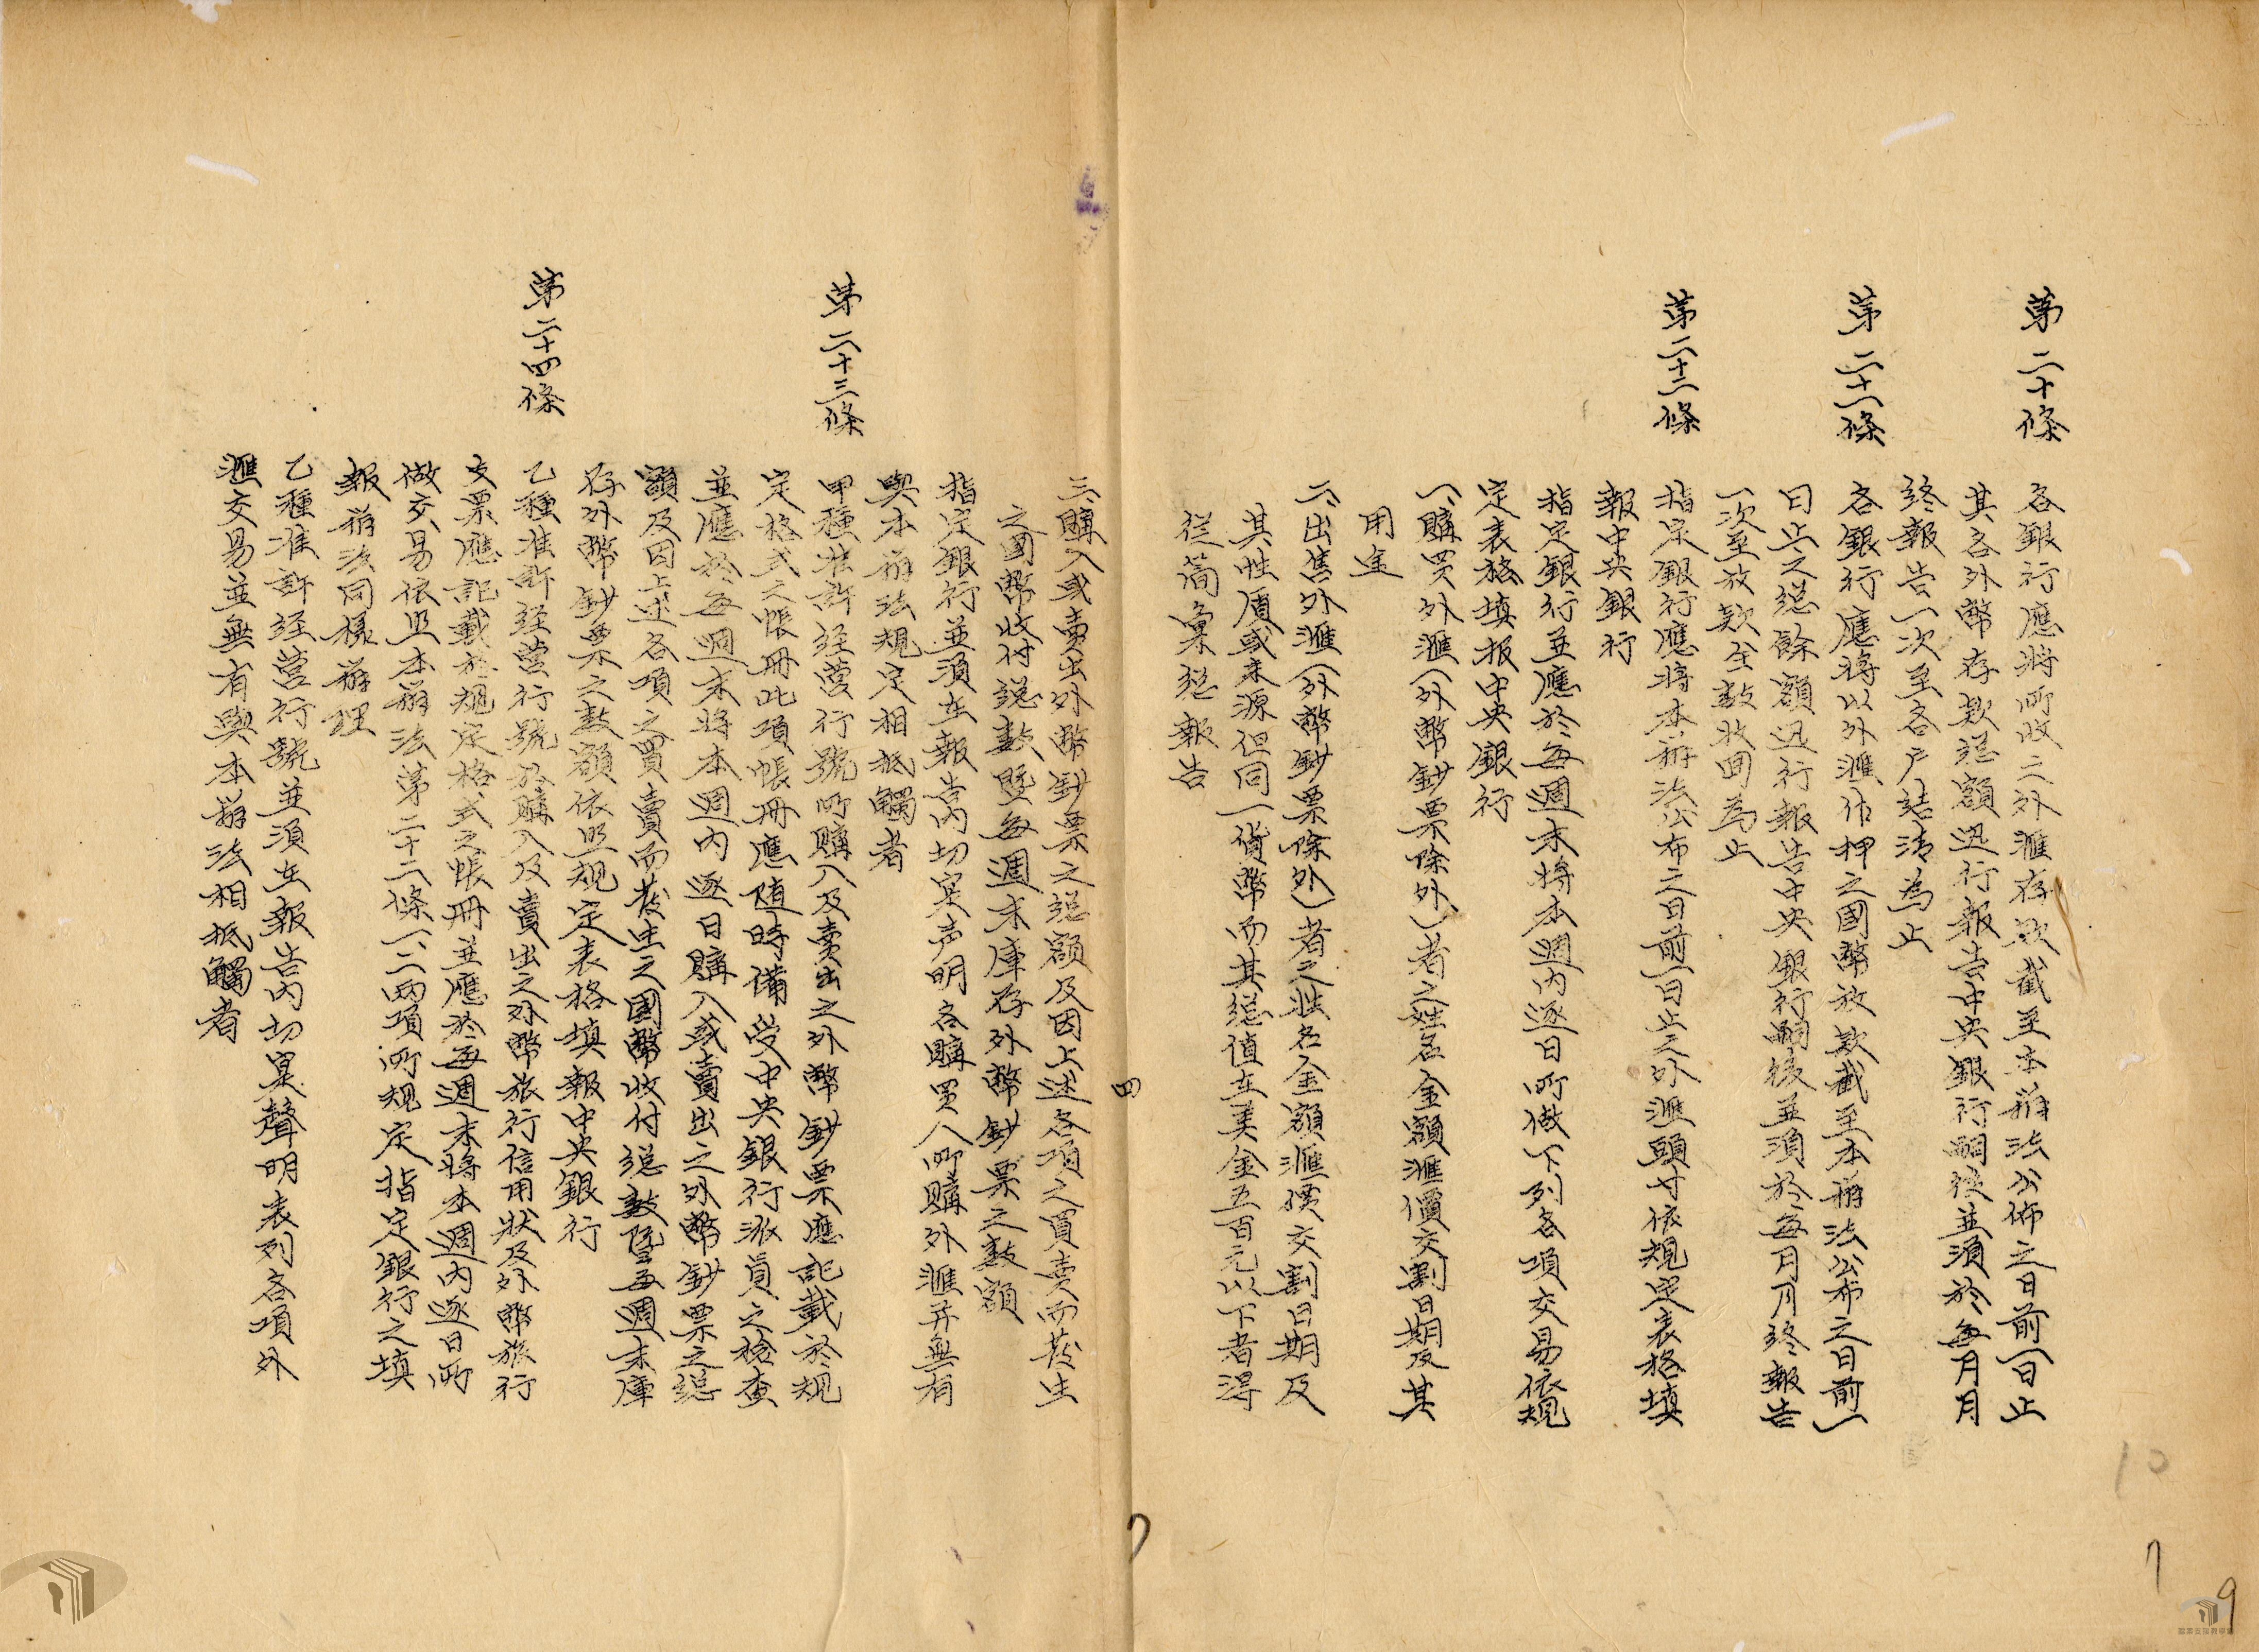 第二十條　各銀行應將所收之外滙存欵截至本辦法公佈之日前一日止
其各外幣存欵總額迅行報告中央銀行嗣後並須於每月月
終報告一次至各户結清為止
第二十一條　各銀行應將以外滙作押之國幣放欵截至本辦法公布之日前一
日止之總餘額迅行報告中央銀行嗣後並須於每月月終報告
一次至放欵全數收回為止
第二十二條　指定銀行應將本辦法公布之日前一日止之外滙頭寸依規定表格填
報中央銀行
指定銀行並應於每週末將本週内逐日所做下列各項交易依規
定表格填报中央銀行
一、購買外滙（外幣鈔票除外）者之姓名金額滙價交割日期及其
用途
二、出售外滙（外幣鈔票除外）者之姓名金額滙價交割日期及
其性質或来源但同一貨幣而其總值在美金五百元以下者得
從簡彙總報告
四
三、購入或賣出外幣鈔票之總額及因上述各項之買卖而發生
之國幣收付總數暨每週末庫存外幣鈔票之數額
指定銀行並須在報告内切实声明各購買人所購外滙并無有
與本辦法規定相抵觸者
第二十三條　甲種准許经營行號所購入及賣出之外幣鈔票應記載於規
定格式之帳冊此項帳冊應随時備受中央銀行派員之檢查
並應於每週末將本週内逐日購入或賣出之外幣鈔票之總
額及因上述各項之買賣而發生之國幣收付總數暨每週末庫
存外幣鈔票之數額依照規定表格填報中央銀行
第二十四條　乙種准許经營行號於購入及賣出之外幣旅行信用狀及外幣旅行
支票應記載於規定格式之帳冊並應於每週末將本週内逐日所
做交易依照本辦法第二十二條一、二兩項所規定指定銀行之填
報辦法同樣辦理
乙種准許经营行號並須在報告内切寔聲明表列各項外
滙交易並無有與本辦法相抵觸者
10
7
7
9